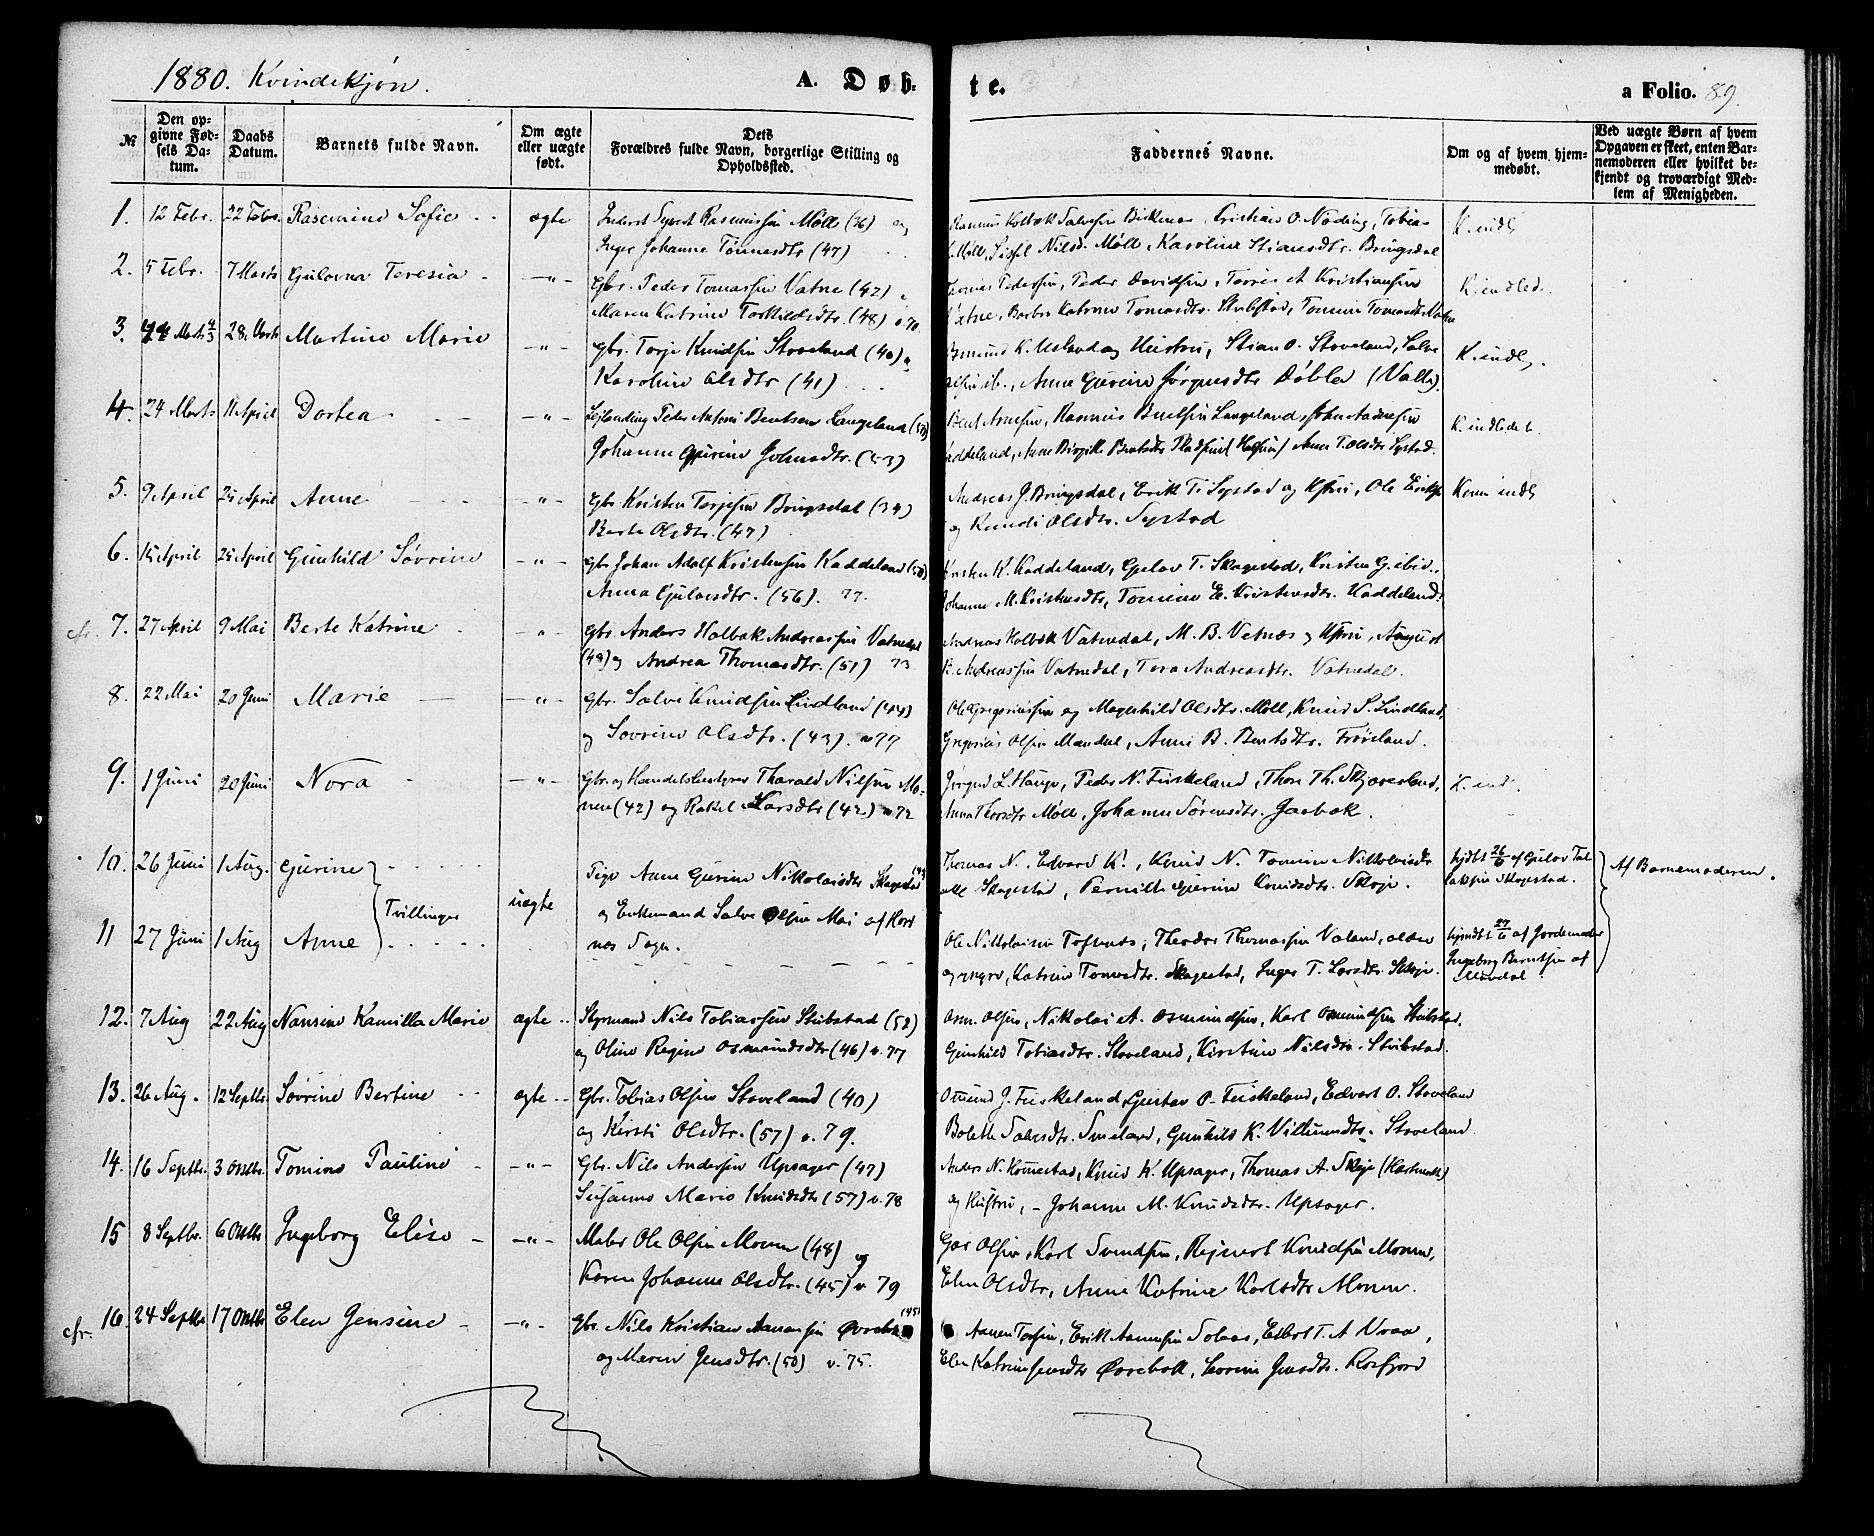 1880. Kvindekjøn.
A. Døb-
te.
a Folio. 89.
№
Den op-
givne Fød-
sels Da-
tum.
Daabs
Datum.
Barnets fulde Navn.
Om ægte
eller uægte
født.
Dets
Forældres fulde Navn, borgerlige Stilling og
Opholdssted.
Faddernes Navne.
Om og af hvem hjem-
medøbt.
Ved uægte Børn af hvem
Opgaven er skeet, enten Bar-
nemoderen eller hvilket be-
kjendt og troværdigt Med-
lem af Menigheden.
1. 12 Febr. 22 Febr. Rasmine Sofie ægte Inderst Syvert Rasmussen Møll (36) og
Inger Johanne Tønnesdtr (47)
Rasmus Holbæk Salvesen Birkenes, Kristian O. Nøding, Tobias
Møll, Sissel Nilsd. Møll, Karoline Stiansdtr. Bringsdal
K. indl
2. 5 Febr. 7 Marts Gulovna Teresia - -"- Gbr. Peder Tomassen Vatne (42)
Maren Katrine Torkildsdtr. (48) v. 70
Pedersen, Peder Davidsen, Tørres A Kristiansen
Vatne, Barbro Katrine Tomasdtr. Stubstad, Tomine Tomasdtr
K. indled.
3. 4/3 28 Marts Martine Marie -"- Gbr. Torje Knudsen Stoveland (40) og
Karoline Olsdtr (41)
K. Usland og Hustru, Stian O. Stoveland, Salve
Anne Gurine Jørgensdtr Døble (Valle).
K. indl.
4. 24 Marts 11 April Dortea -"- Leilending Peder Antoni Bentsen Langeland (50)
Johanne Gurine Johnsdtr. (53)
Bent Arnesen, Rasmus Bentsen Langeland, John Aadnesen
Kaddeland, Anne Birgitte Bentsdtr Anne T. Olsdtr Systad.
K. indledet.
5. 9 April 25 April Anne -"- Gbr. Kristen Terjesen Bringsdal (34)
Berte Olsdtr. (47)
Andreas J. Bringsdal, Erik T. Systad og Hstru, Ole Eriks
og Randi Olsdtr. Systad
Konen indl
6. 15 April 25 April Gunhild Sørine -"- Gbr Johan Adolf Kristensen Kaddeland (50)
Anna Gulovsdtr. (56). 77.
Kristen K. Kaddeland, Gulov T. Skagestad, Kristen G. ibid.,
Johanne M. Kristensdtr, Tomine E. Kristensdtr. Kaddeland.
cfr. 7. 27 April 9 Mai Berte Katrine -"- Gbr. Anders Holbæk Andreassen Vatnedal
(49) og Andrea Thomasdtr. (51) 73
Andreas Holbæk Vatnedal, M. B. Vetnes og Hstru, August
R. Andreassen Vatnedal, Tera Andreasdtr. Vatnedal.
8. 22 Mai 20 Juni Marie -"- Gbr. Salve Knudsen Lindland (44)
og Sørine Olsdtr. (43). v 77
Ole Gregoriussen og Magnhild Olsdtr. Møll, Knud S. Lindland,
Gregorius Olsen Mandal, Anne B. Bentsdtr. Frøiland.
9. 1 Juni 20 Juni Nora - -"- Gbr. og Handelsbestyrer Tharald Nilsen Mo-
nen (42) og Rakel Larsdtr (42) v 72
Jørgen L. Hauge, Peder N. Fuskeland, Thore Th. Skjævesland,
Anna Thorsdtr Møll, Johanne Sørensdtr. Jaabæk.
K. ind.
10. 26 Juni 1 Aug. Gurine
Tvillinger uægte Pige Anne Gurine Nikolaisdtr Skagestad
og Enkemand Salve Olsen Moi af Hort
nes Sogn.
Thomas N., Edvard K., Knud N. Tomine Nikolaisdtr
alle Skagestad, Pernille Gurine Knudsdtr. Skoje.
hjdbt 26/6 af Gulov Tal
laksen Skagestad.
Af Barnemoderen.
11 27 Juni 1 Aug Anne
Ole Nikolaisen Tofsnes, Theodor Thomassen Valand, ældre
og yngre, Katrine Tomasdtr. Skagestad, Inger T. Larsdtr. Skoje.
hjmdbt 27/6 af Jordemoder
Ingeborg Berntsen af
Mandal.
12. 7 Aug 22 Aug Nansine Kamilla Marie ægte Styrmand Nils Tobiassen Stubstad (52)
og Oline Regine Osmundsdtr (46) v. 77
Osm. Olsen, Nikolai A. Osmundsen, Karl Osmundsen Stubstad,
Gunhild Tobiasdtr. Stoveland, Kirstine Nilsdtr. Stubstad.
13. 26 Aug. 12 Septbr. Sørine Bertine ægte Gbr. Tobias Olsen Stoveland (40)
og Kirsti Olsdtr. (57) v. 79.
Osmund J. Fuskeland, Gustav O. Fuskeland, Edvart O. Stoveland
Bolette Salvesdtr. Smeland, Gunhild K. Villumsdtr. Stoveland
14. 16 Septbr. 3 Oktbr. Tomine Pauline - -"- Gbr. Nils Andersen Upsager (47)
Susanne Marie Knudsdtr (57) v. 78
Anders N. Homestad, Knud K. Upsager, Thomas A. Skoje (Hartmark)
og Hustru, - Johanne M. Knudsdtr. Upsager.
15 8 Septbr. 6 Oktbr. Ingeborg Elise - -"- Maler Ole Olsen Monen (48) og
Karen Johanne Olsdtr. (45) v 79
Olsen, Karl Svendsen, Rejnert Knudsen Monen,
Elen Olsdtr, Anne Katrine Karlsdtr Monen.
cfr. 16. 24 Septbr 17 Oktbr Elen Gensine - -"- Gbr. Nils Kristian Aanensen Øvrebø (45)
og Maren Jensdtr. (50) v. 75.
Aanen Torsen, Erik Aanensen Solaas, Esbert T. A Vraa,
Elen Katrine Jensdtr Øvrebøll, Jensdtr. Rosfjord